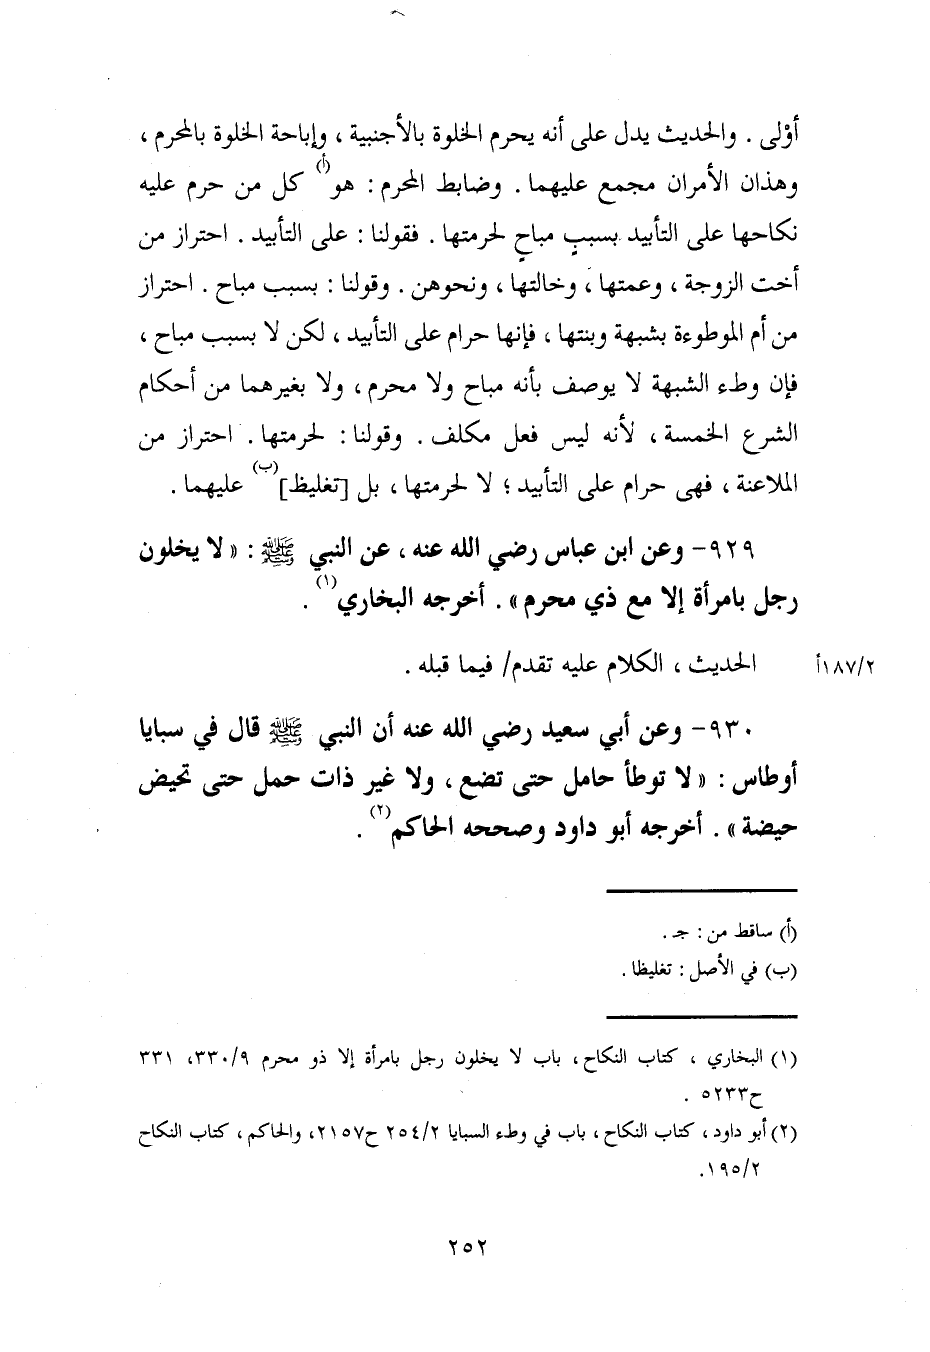 أوْلى . والحديث يدل على أنه يحرم الخلوة بالأجنبية ، وإباحة الخلوة بالمحرم ،
وهذان الأمران مجمع عليهما . وضابط المحرم : هو(أ) كل من حرم عليه
نكاحها على التأبيد بسببٍ مباحٍ لحرمتها . فقولنا : على التأبيد . احتراز من
أخت الزوجة ، وعمتها ، وخالتها ، ونحوهن . وقولنا : بسبب مباح . احتراز
من أم الموطوءة بشبهة وبنتها ، فإنها حرام على التأبيد ، لكن لا بسبب مباح ،
فإن وطء الشبهة لا يوصف بأنه مباح ولا محرم ، ولا بغيرهما من أحكام
الشرع الخمسة ، لأنه ليس فعل مكلف . وقولنا : لحرمتها . احتراز من
الملاعنة ، فهى حرام على التأبيد ؛ لا لحرمتها ، بل [تغليظ](ب) عليهما .
٩٢٩- وعن ابن عباس رضي الله عنه ، عن النبي ﷺ : « لا يخلون
رجل بامرأة إلا مع ذي محرم » . أخرجه البخاري(١) .
الحديث ، الكلام عليه تقدم/ فيما قبله .
١٨٧/٢أ
٩٣٠- وعن أبي سعيد رضي الله عنه أن النبي ﷺ قال في سبايا
أوطاس : « لا توطأ حامل حتى تضع ، ولا غير ذات حمل حتى تحيض
حيضة » . أخرجه أبو داود وصححه الحاكم(٢) .
(أ) ساقط من : جـ .
(ب) في الأصل : تغليظا .
(١) البخاري ، كتاب النكاح ، باب لا يخلون رجل بامرأة إلا ذو محرم ٣٣٠/٩، ٣٣١
ح٥٢٣٣ .
(٢) أبو داود ، كتاب النكاح ، باب في وطء السبايا ٢٥٤/٢ ح٢١٥٧، والحاكم ، كتاب النكاح
١٩٥/٢.
٢٥٢